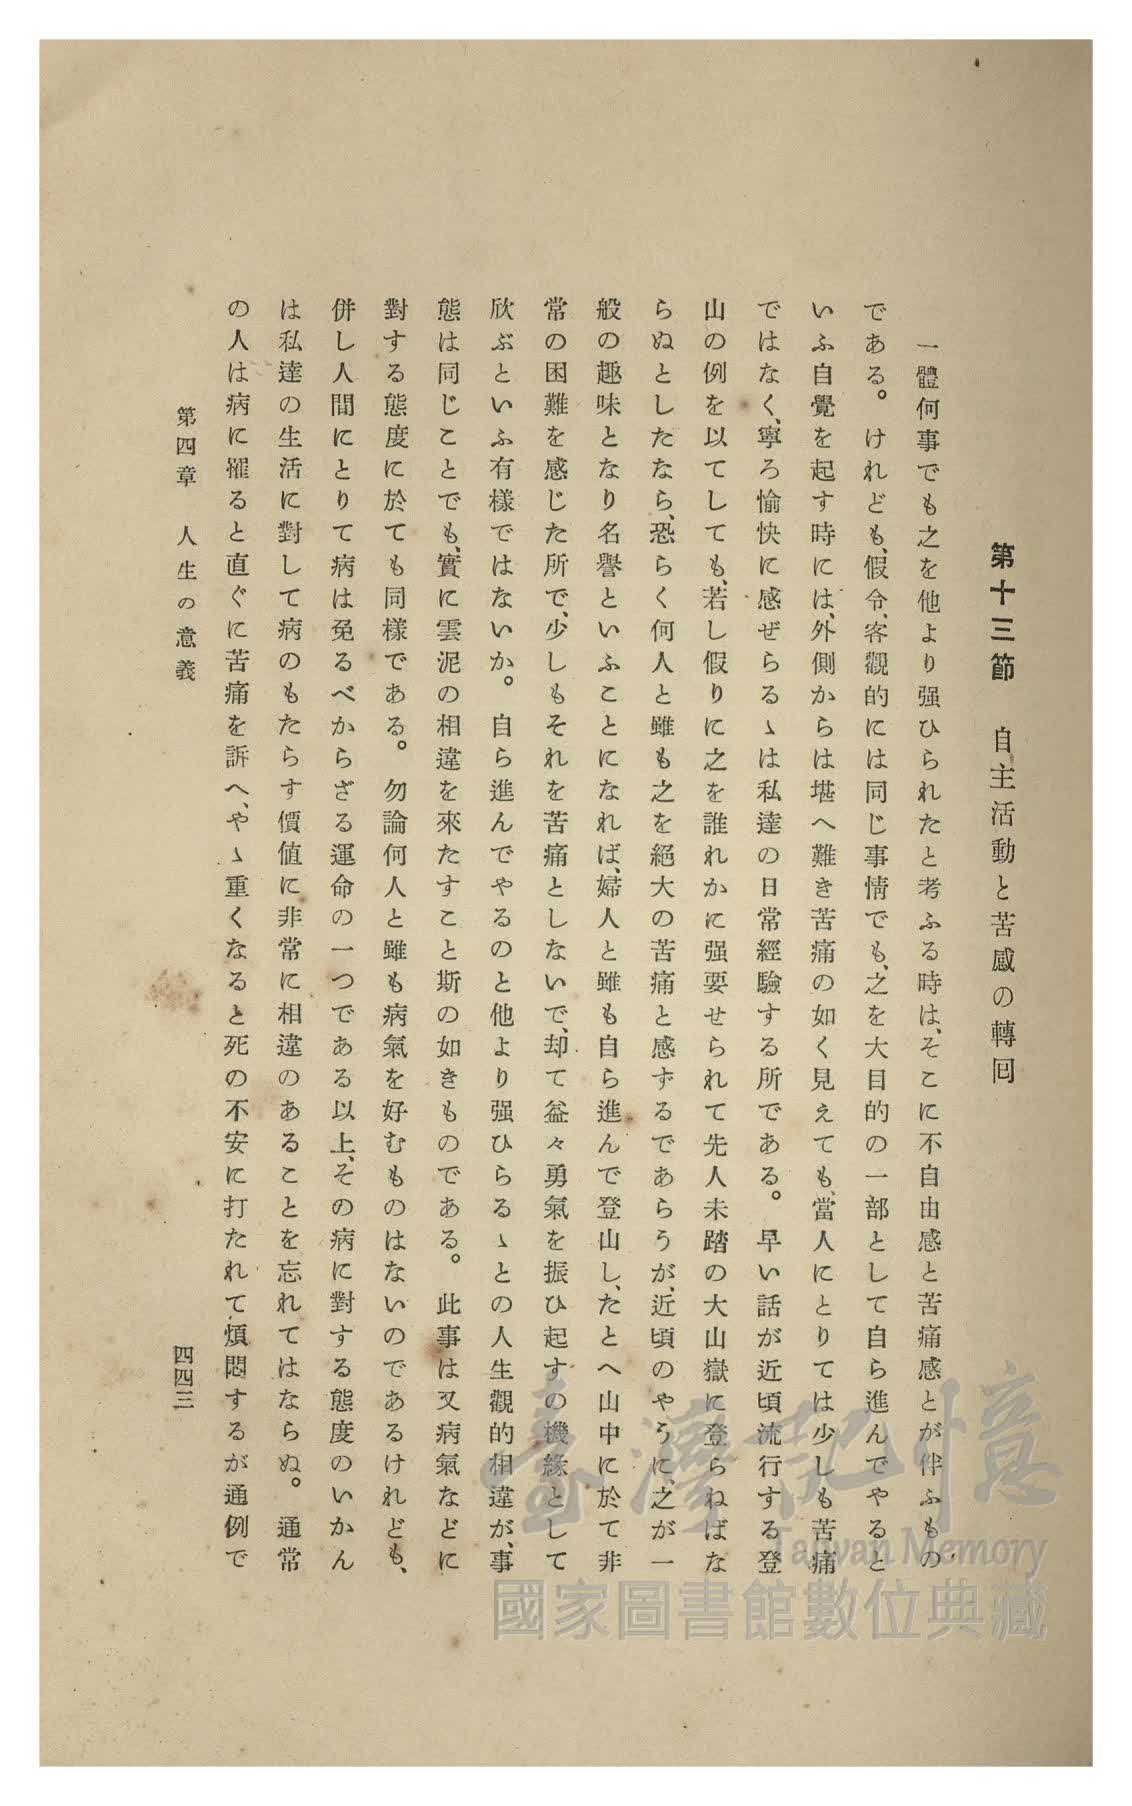 第十三節　自主活動と苦感の轉回
一體何事でも之を他より强ひられたと考ふる時は、そこに不自由感と苦痛感とが伴ふもの
である。けれども、假令、客觀的には同じ事情でも、之を大目的の一部として自ら進んでやると
いふ自覺を起す時には、外側からは堪へ難き苦痛の如く見えても、當人にとりては少しも苦痛
ではなく、寧ろ愉快に感ぜらるゝは私達の日常經驗する所である。早い話が近頃流行する登
山の例を以てしても、若し假りに之を誰れかに强要せられて先人未踏の大山嶽に登らねばな
らぬとしたなら、恐らく何人と雖も之を絕大の苦痛と感ずるであらうが、近頃のやうに、之が一
般の趣味となり名譽といふことになれば、婦人と雖も自ら進んで登山し、たとへ山中に於て非
常の困難を感じた所で、少しもそれを苦痛としないで、却て益々勇氣を振ひ起すの機緣として
欣ぶといふ有樣ではないか。自ら進んでやるのと他より强ひらるゝとの人生觀的相違が、事
態は同じことでも、實に雲泥の相違を來たすこと斯の如きものである。此事は又病氣などに
對する態度に於ても同樣である。勿論何人と雖も病氣を好むものはないのであるけれども、
併し人間にとりて病は免るべからざる運命の一つである以上、その病に對する態度のいかん
は私達の生活に對して病のもたらす價値に非常に相違のあることを忘れてはならぬ。通常
の人は病に罹ると直ぐに苦痛を訴へ、やゝ重くなると死の不安に打たれて煩悶するが通例で
第四章　人生の意義
四四三
臺灣記憶
Taiwan Memory
國家圖書館數位典藏